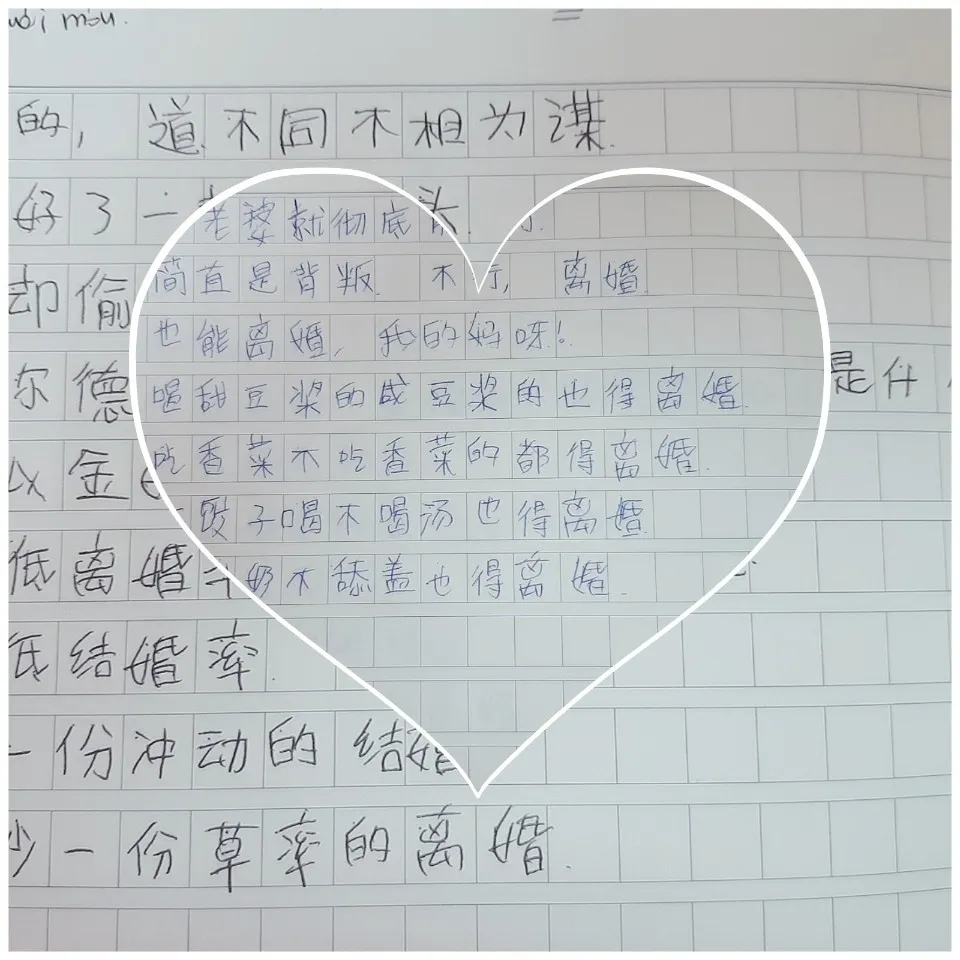 的，道不同不相为谋.
好了一
却偷
尔德
是什
以金
低离婚
低结婚率.
一份冲动的结婚
少一份草率的离婚.
老婆就彻底
简直是背叛. 不行，离婚.
也能离婚，我的妈呀！
喝甜豆浆的咸豆浆的也得离婚.
吃香菜不吃香菜的都得离婚.
饺子喝不喝汤也得离婚.
奶不舔盖也得离婚.